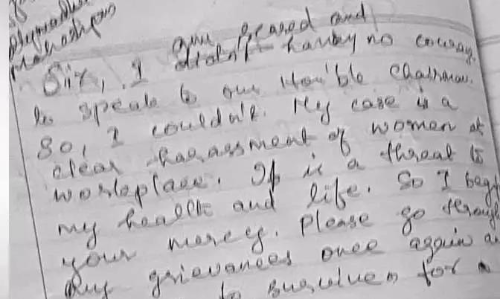 Sir, I am scared and
didn't having no courage
to speak to our Hon'ble Chairman.
So, I couldn't. My case is a
clear harassment of women at
workplace. It is a threat to
my health and life. So I beg
your mercy. Please go through
my grievances once again
to for